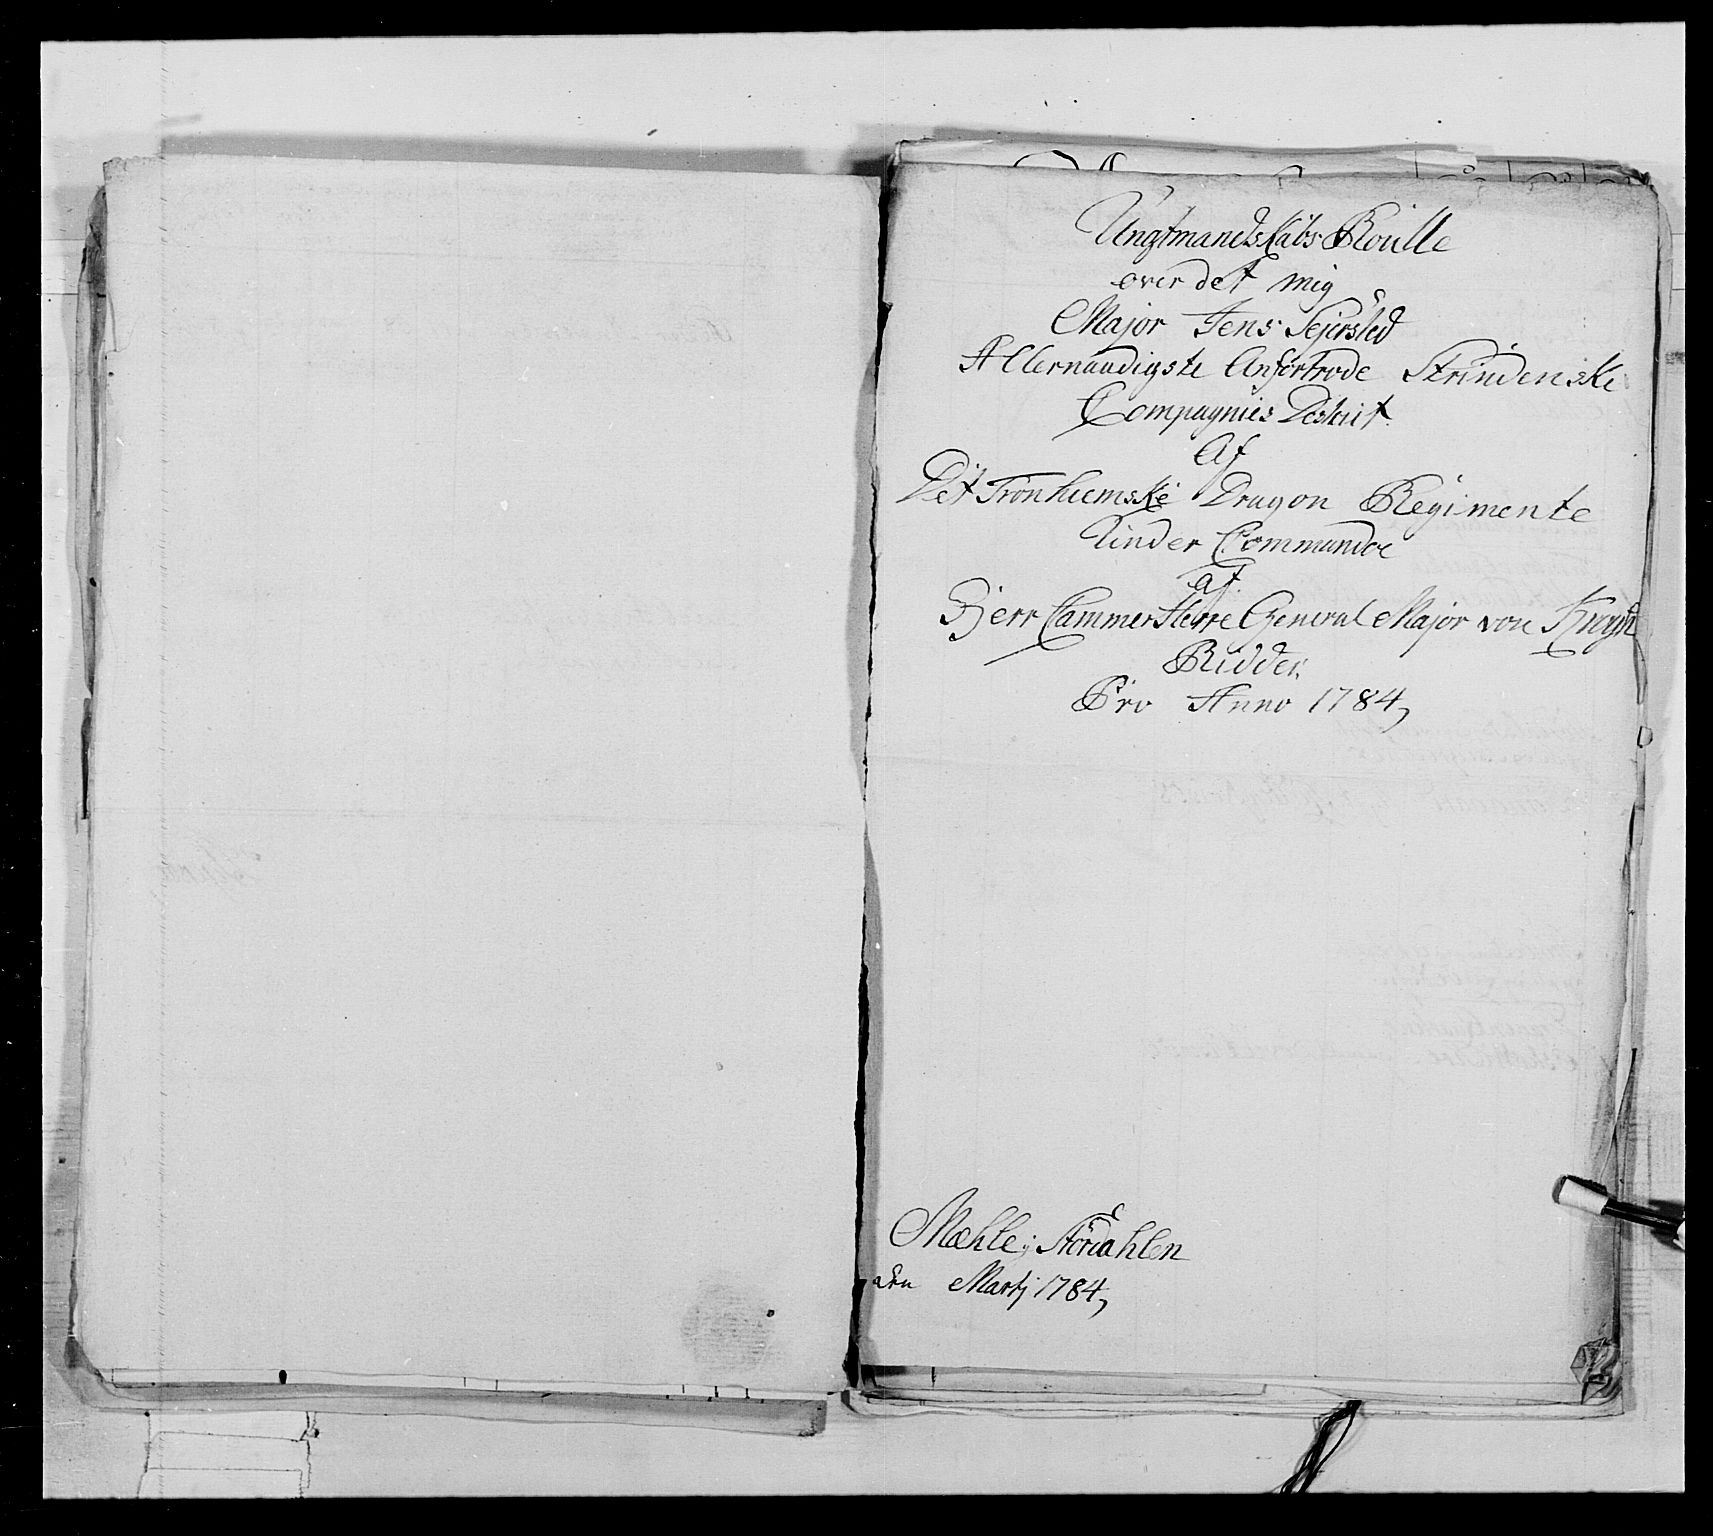 Ungtmandskabs Roulle
over det mig
Major Jens Sejersted
Allernaadigste Anfortrode Strindenske
Compagnies Distrikt
Af
Det Tronhiemske Dragon Regimente
Under Commandoe
af
Hierr CammerHerre General Major von Krogh
Ridder.
Pro Anno 1784,
Mæhle i Størdahlen
den Martj 1784,